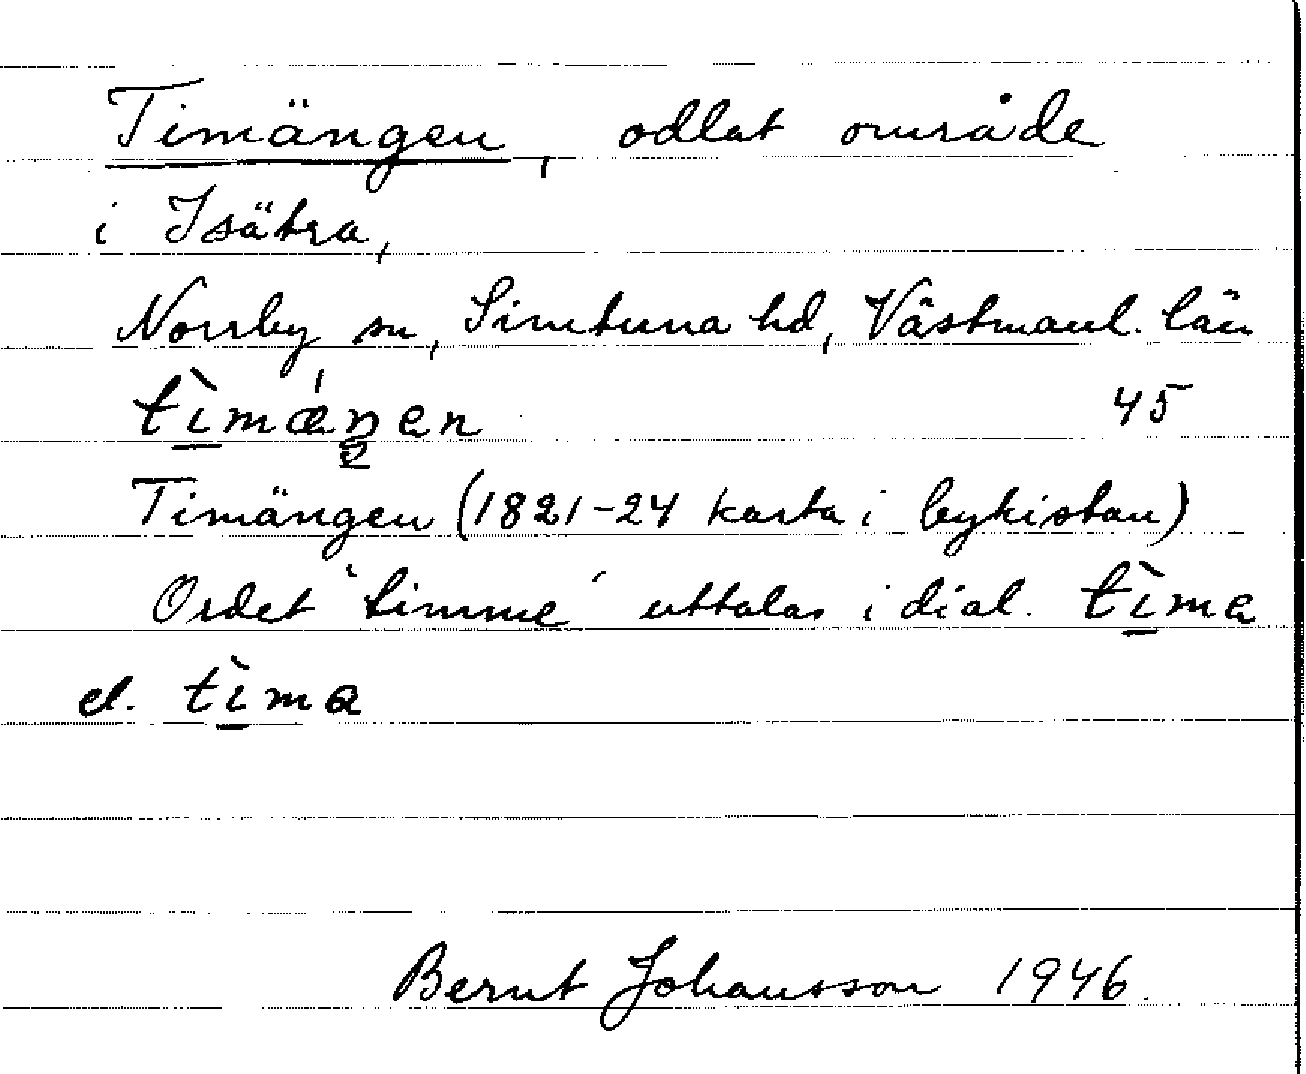 Timängen, odlat område
i Isätra,
Norrby sn, Simtuna hd, Västmanl. län
tìmǽŋen 45
Timängen (1821-24 karta i bykistan)
Ordet 'timme' uttalas i dial. tìma
el. tìma
Bernt Johansson 1946.